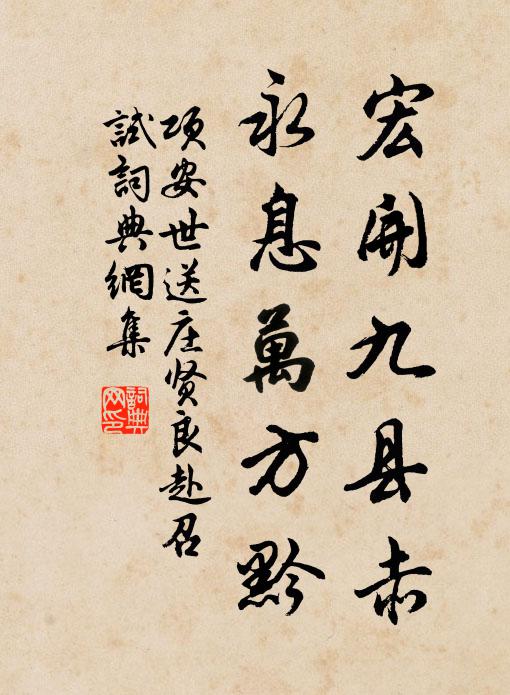 宏开九县赤
永息萬方黔
项安世送庄贤良赴召
試詞典網集
詞典
网印